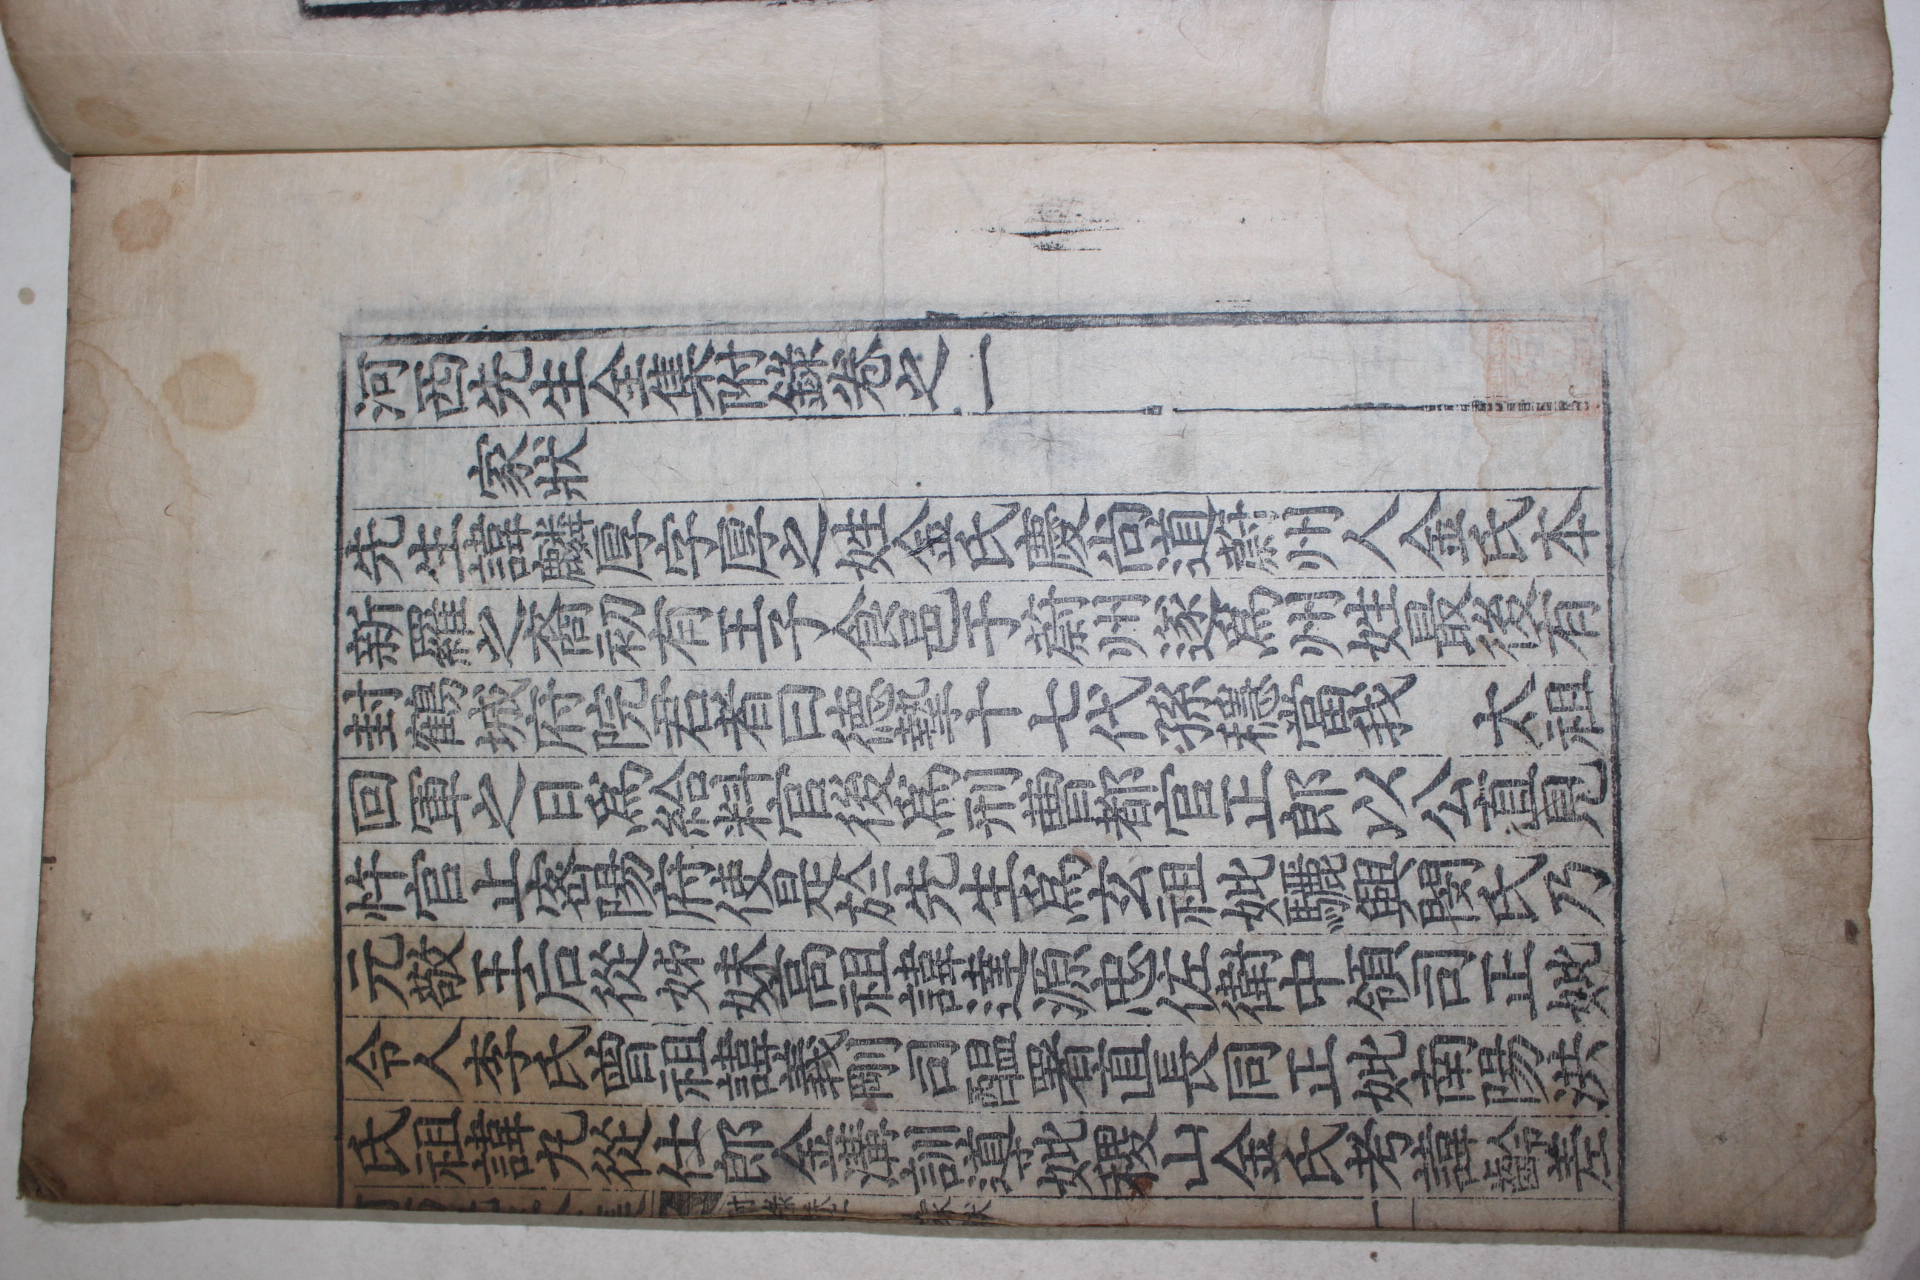 河西先生全集附錄卷之一
家狀
先生諱麟厚字厚之姓金氏慶尙道蔚州人金氏本
新羅之裔初有王子食邑于蔚州遂爲州姓最後有
封鶴城府院君者曰德摯十七代孫穩當我 太祖
回軍之日爲給料官後爲刑曹都官正郎以公直見
忤官止密陽府使是於先生爲玄祖妣驪興閔氏乃
元敬王后從姊妹高祖諱達源忠佐衛中領司正妣
令人李氏曾祖諱義剛司醞署直長同正妣南陽洪
氏祖諱丸從仕郎金溝訓導妣稷山金氏考諱齡差